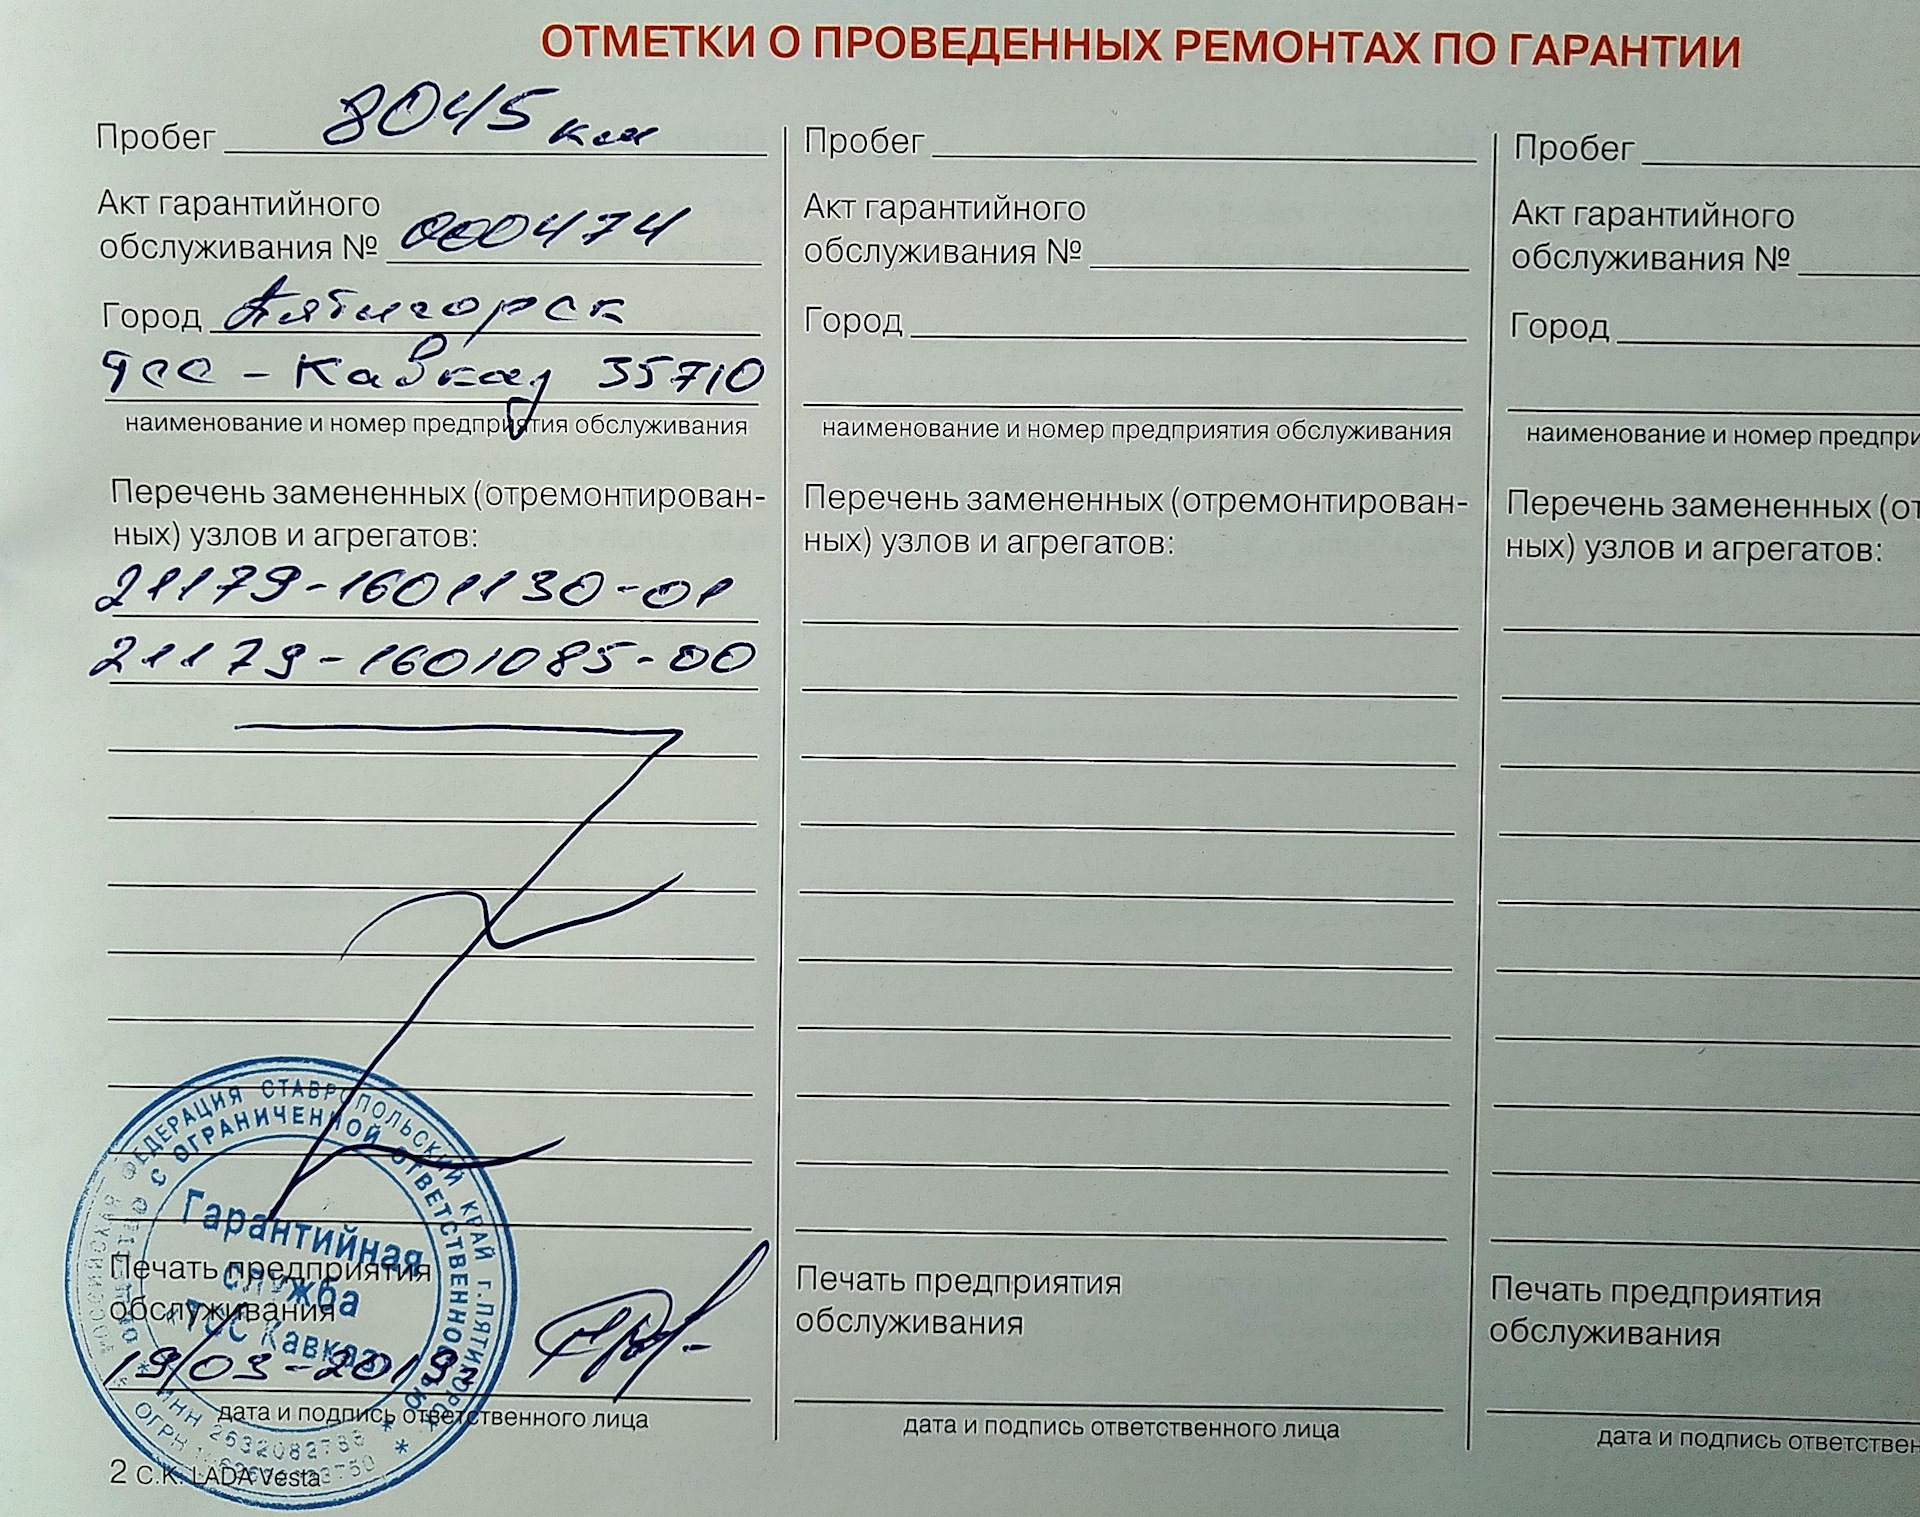 ОТМЕТКИ О ПРОВЕДЕННЫХ РЕМОНТАХ ПО ГАРАНТИИ
Пробег 8045 км
Акт гарантийного
обслуживания № 000474
Город Пятигорск
ТСС - Кавказ 35710
наименование и номер предприятия обслуживания
Перечень замененных (отремонтирован-
ных) узлов и агрегатов:
21179-1601130-01
21179-1601085-00
РОССИЙСКАЯ ФЕДЕРАЦИЯ СТАВРОПОЛЬСКИЙ КРАЙ г.ПЯТИГОРСК
ОБЩЕСТВО С ОГРАНИЧЕННОЙ ОТВЕТСТВЕННОСТЬЮ
Гарантийная
служба
ТСС Кавказ
ИНН 2632082783
ОГРН
Печать предприятия
обслуживания
19/03-2019г
дата и подпись ответственного лица
2 С.К. LADA Vesta
Пробег
Акт гарантийного
обслуживания №
Город
наименование и номер предприятия обслуживания
Перечень замененных (отремонтирован-
ных) узлов и агрегатов:
Печать предприятия
обслуживания
дата и подпись ответственного лица
Пробег
Акт гарантийного
обслуживания №
Город
наименование и номер предпри
Перечень замененных (от
ных) узлов и агрегатов:
Печать предприятия
обслуживания
дата и подпись ответствен